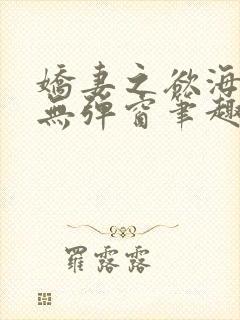 嬌妻之欲海
無彈窗筆趣
羅露露